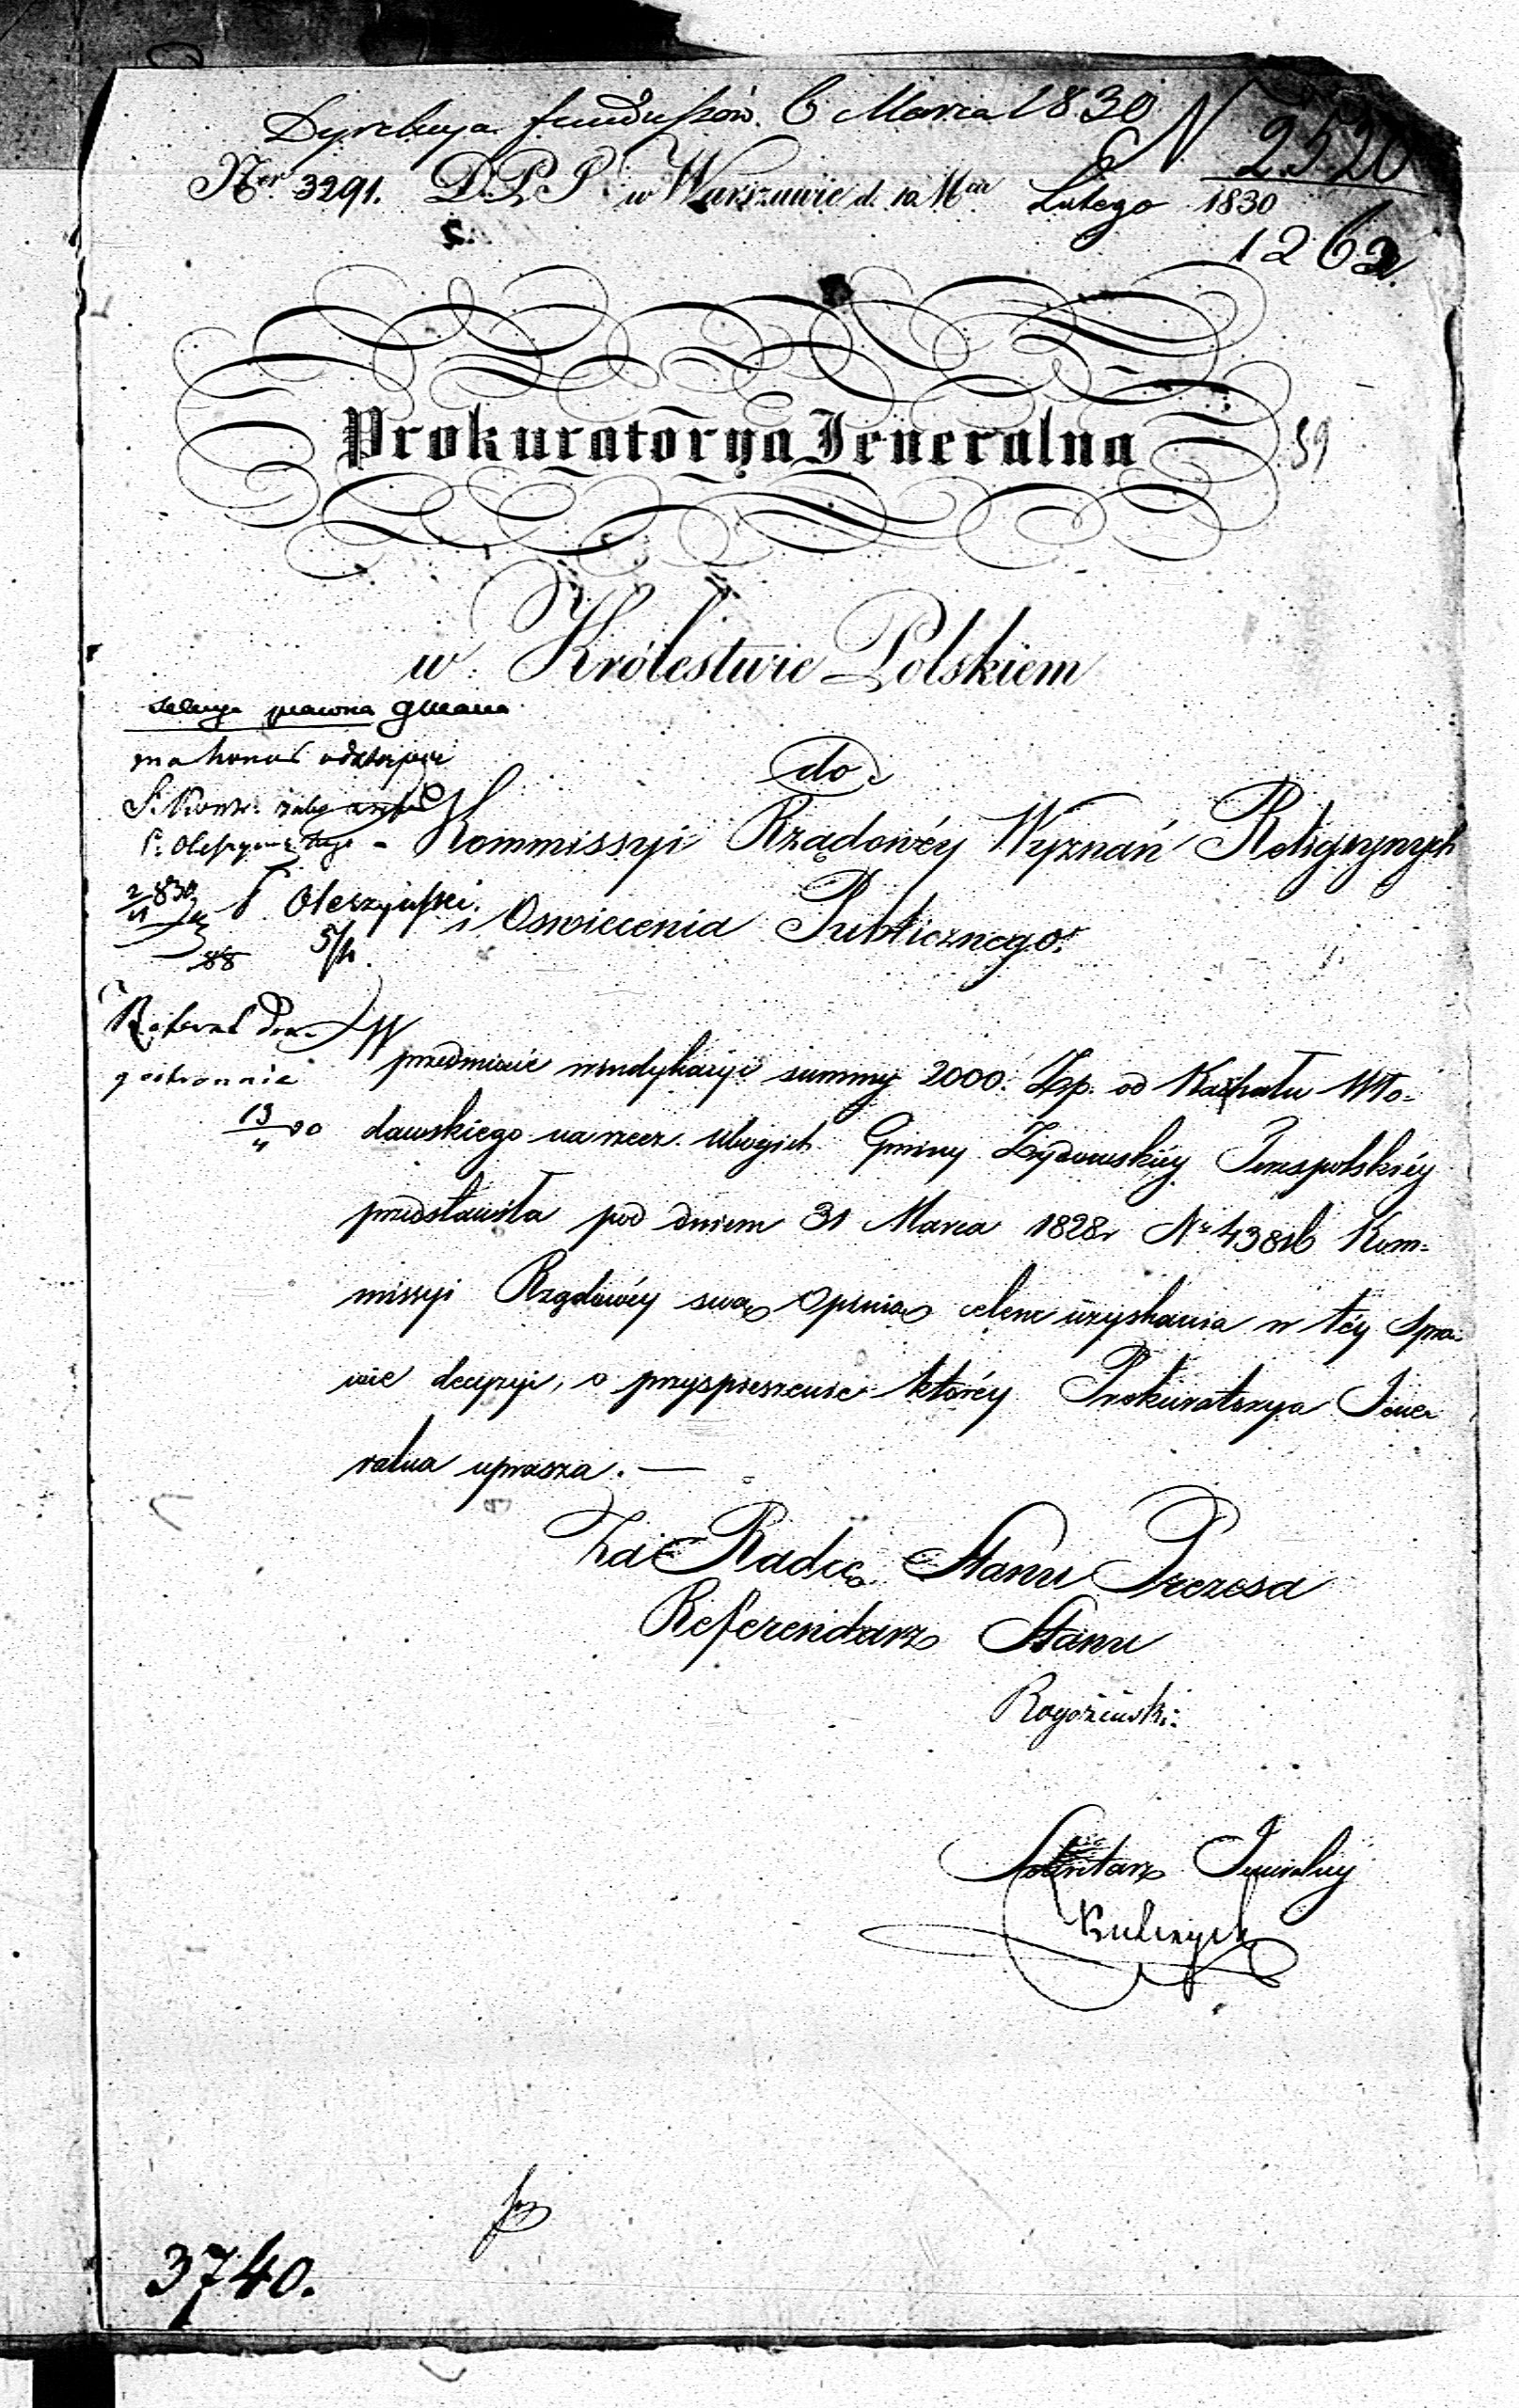 Dyrekcya funduszów. 6 Marca 1830
N 2520
Ner 3291. D.P.S w Warszawie d. 10 Mca Lutego 1830
1262
Prokuratorya Jeneralna
59
w Królestwie Polskiem
do
Kommissyi Rządowéy Wyznań Religiynych
i Oswiecenia Publicznego.
prawna
P. Oleszyński.
88
Referent
13
W przedmiocie windykacyi summy 2000. Złp. od Kahału Wło-
dawskiego na rzecz Ubogich Gminy Żydowskiéy Terespolskiéy
przedstawiła pod dniem 31 Marca 1828r Nr 14381b Kom=
missyi Rządowéy swą Opinią celem uzyskania w téy Spra-
wie decyzyi, o przyspieszenie któréy Prokuratorya Jene-
ralna uprasza. —
Za Radcę Stanu Prezesa
Referendarz Stanu
Rogoziński.
Sekretarz Jeneralny
3740.